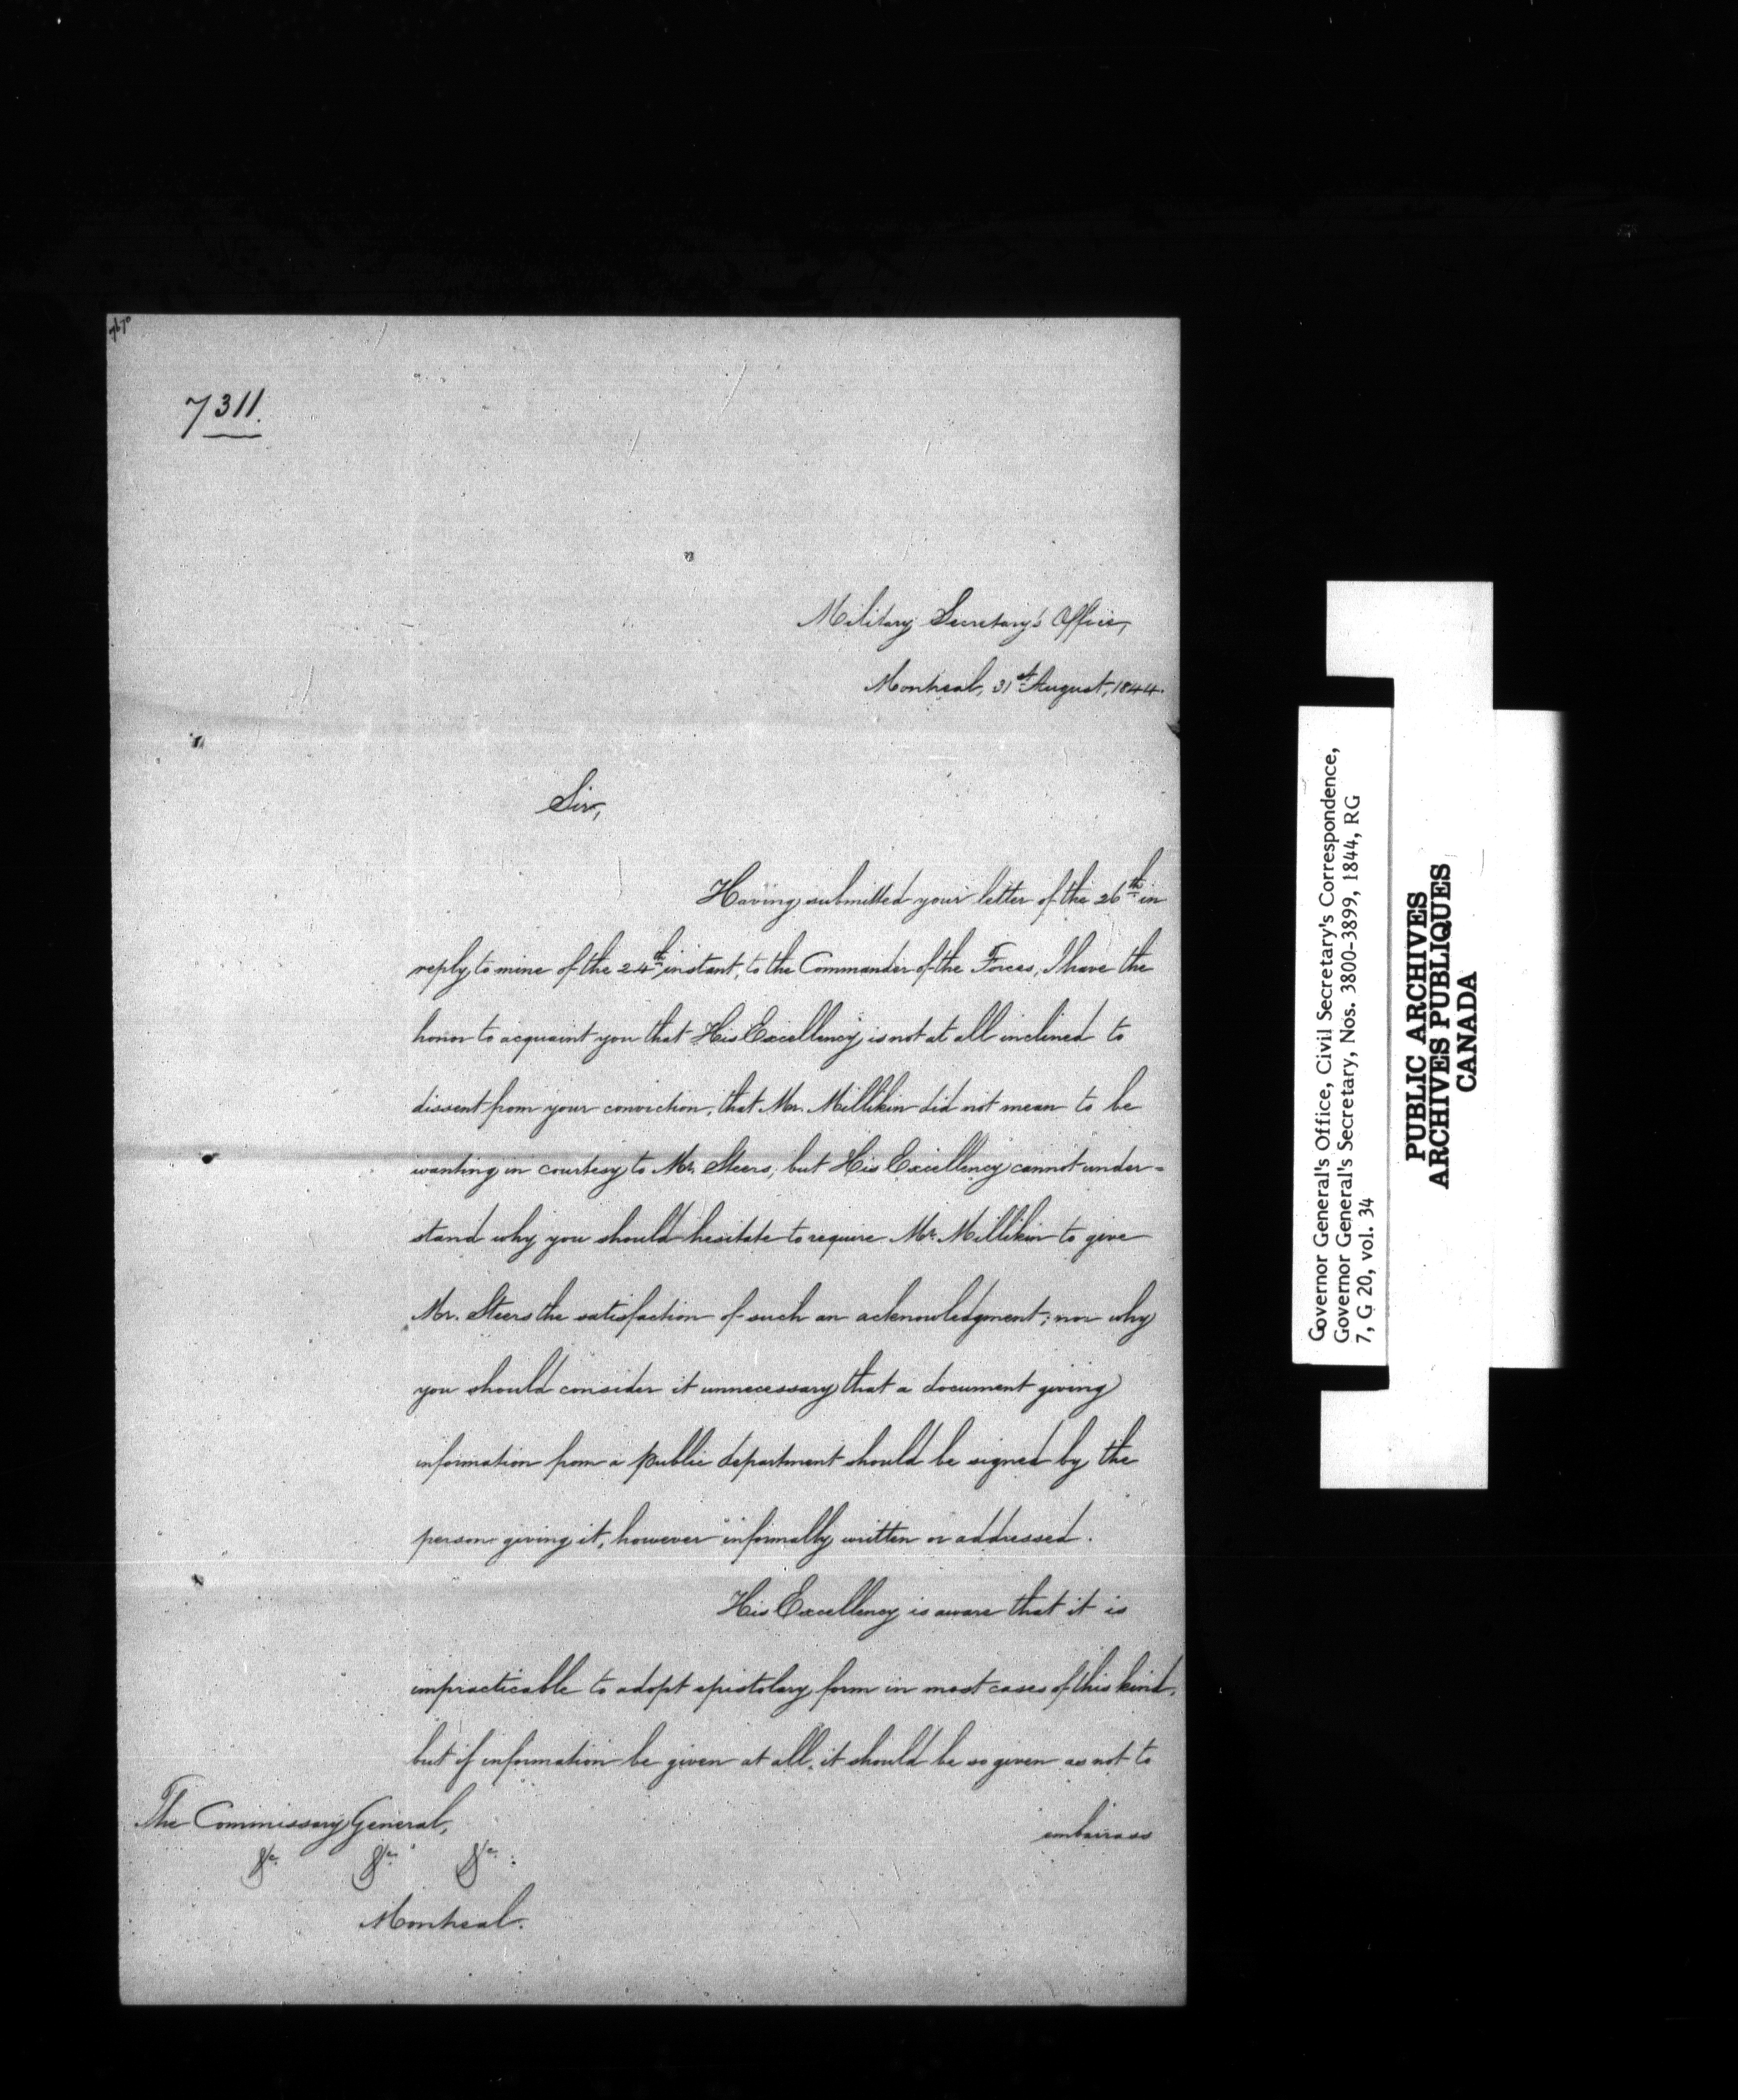 7311.
Military Secretary's Office,
Montreal, 31st August, 1844.
Sir,
Having submitted your letter of the 26th in
reply to mine of the 24th instant, to the Commander of the Forces, I have the
honor to acquaint you that His Excellency is not at all inclined to
dissent from your conviction, that Mr. Millikin did not mean to be
wanting in courtesy to Mr. Steers; but His Excellency cannot under-
stand why you should hesitate to require Mr. Millikin to give
Mr. Steers the satisfaction of such an acknowledgment; nor why
you should consider it unnecessary that a document giving
information from a public department should be signed by the
person giving it, however informally written or addressed.
His Excellency is aware that it is
impracticable to adopt epistolary form in most cases of this kind,
but if information be given at all, it should be so given as not to
embairass
The Commissary General,
&c. &c. &c.
Montreal.
Governor General's Office, Civil Secretary's Correspondence,
Governor General's Secretary, Nos. 3800-3899, 1844, RG
7, G 20, vol. 34
PUBLIC ARCHIVES
ARCHIVES PUBLIQUES
CANADA